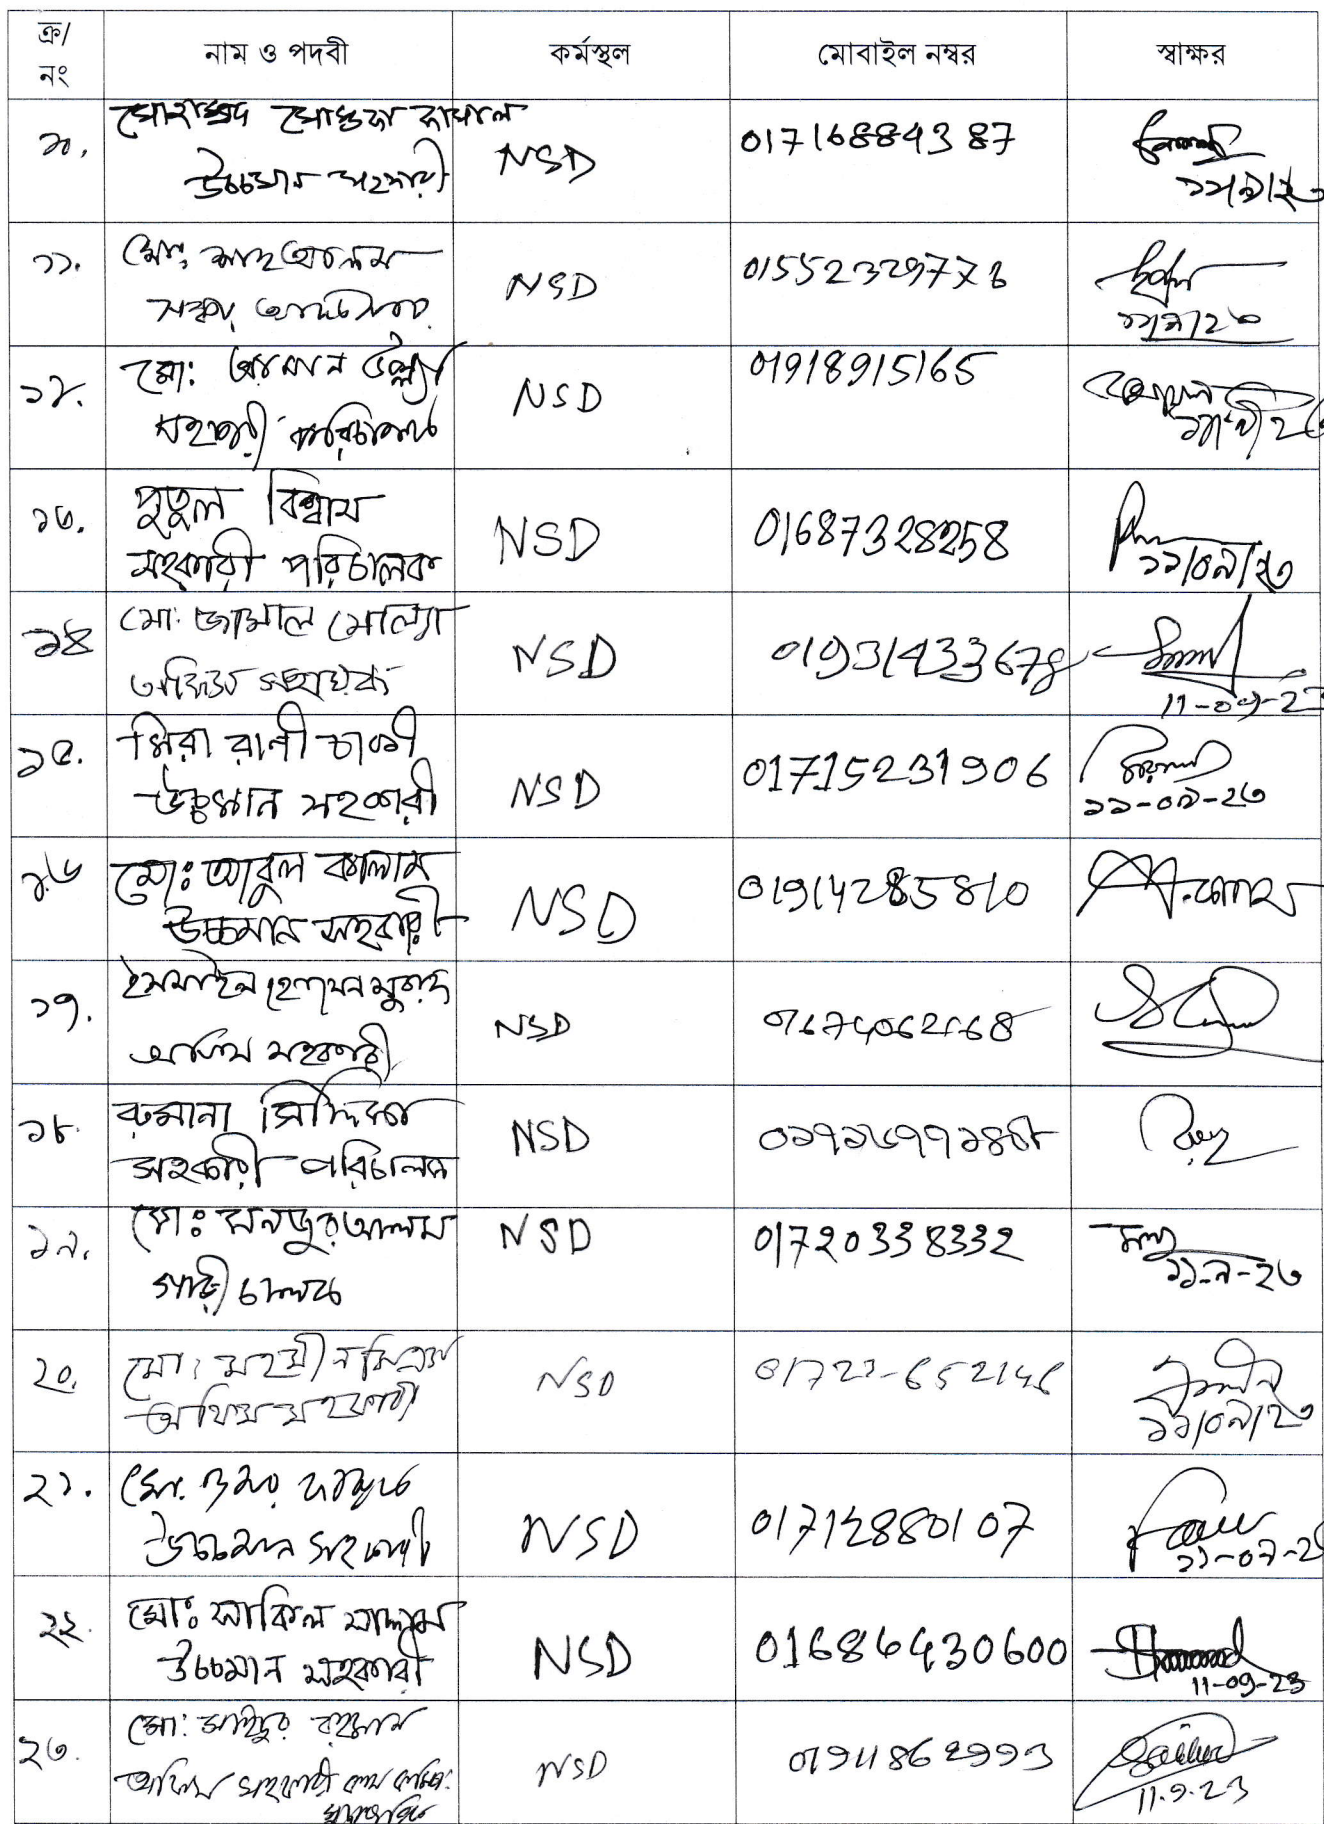 ক্র/
নং
নাম ও পদবী
কর্মস্থল
মোবাইল নম্বর
স্বাক্ষর
১০.
মোহাম্মদ মোস্তফা কামাল
উচ্চমান সহকারী
NSD
01716884387
১১.
মো: শাহ আলম
NSD
১২.
মো: আমান উল্ল্যা
সহকারী পরিচালক
NSD
01918915165
১৩.
পুতুল বিশ্বাস
সহকারী পরিচালক
NSD
01687328258
১১/০৯/২৩
১৪
মো: জামাল মোল্যা
অফিস সহায়ক
NSD
01931433678
11-09-23
১৫.
মিরা রানী ঢাকী
উচ্চমান সহকারী
NSD
01715231906
১১-০৯-২৩
১৬
মো: আবুল কালাম
উচ্চমান সহকারী
NSD
01914285810
১৭.
ইসমাইল হোসেন মুরাদ
অফিস সহকারী
NSD
১৮.
রুমানা সিদ্দিকা
সহকারী পরিচালক
NSD
১৯.
মো: মনজুর আলম
গাড়ী চালক
NSD
01720338332
১১-৯-২৩
২০.
অফিস সহকারী
NSD
১১/০৯/২৩
২১.
উচ্চমান সহকারী
NSD
01712880107
২২.
মো: সাকিল
উচ্চমান সহকারী
NSD
01686430600
11-09-23
২৩.
মো: সাইদুর রহমান
অফিস সহকারী কাম কম্পি:
মুদ্রাক্ষরিক
NSD
01911862993
11.9.23